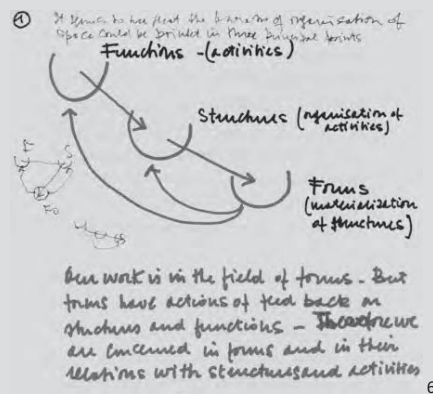 ①
It seems to me that the of organisation of
space could be printed in three principal points
Functions - (activities)
Structures (organisation of
activities)
Forms
(materialization
of structures)
Our work is in the field of forms - But
forms have actions of feed back on
structures and functions - Therefore we
are concerned in forms and in their
relations with structures and activities
6